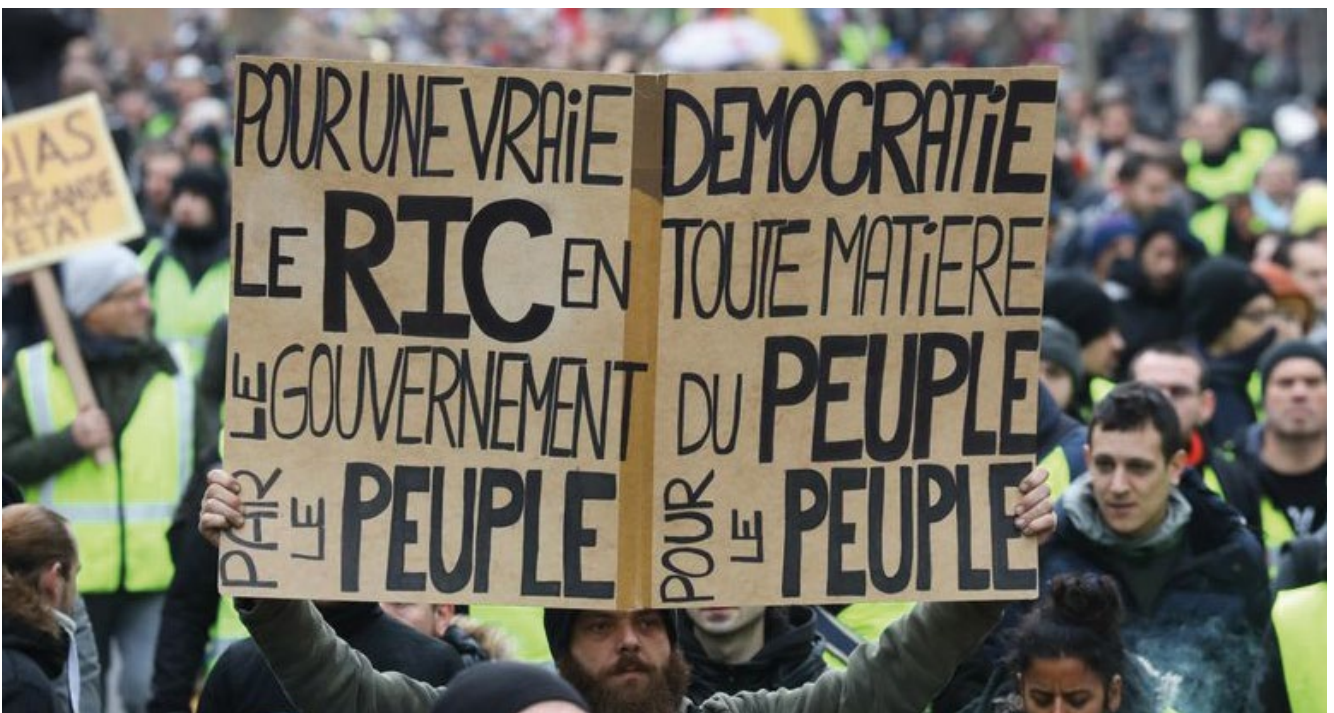 POUR UNE VRAiE DEMOCRATiE
LE RIC EN TOUTE MATiERE
LE GOUVERNEMENT DU PEUPLE
PAR LE PEUPLE POUR LE PEUPLE
DIAS
PAGANDE
ETAT